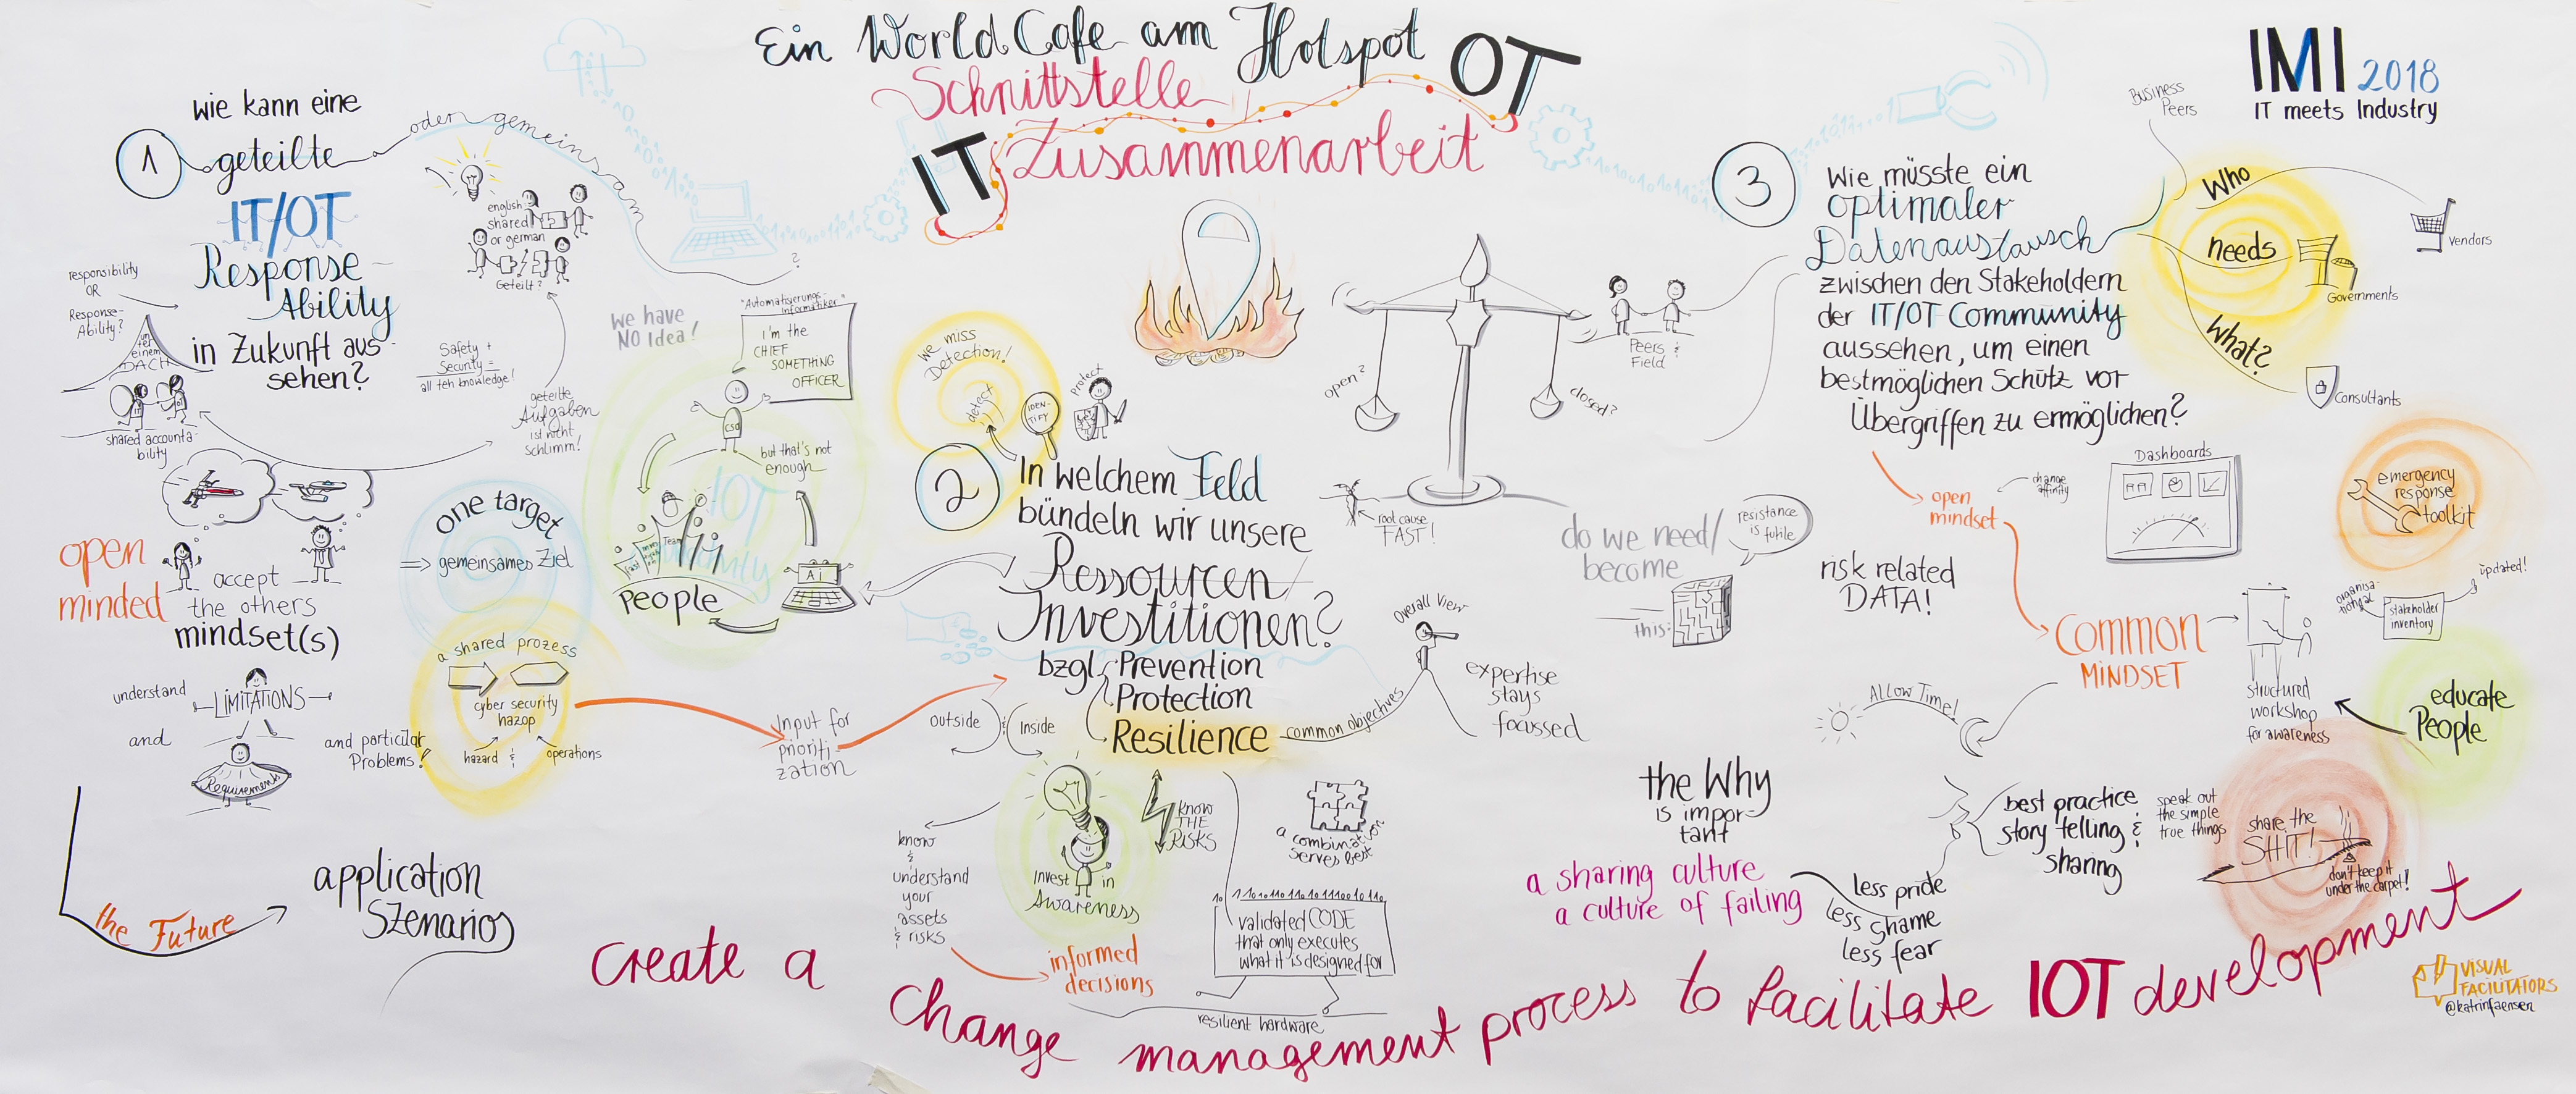 Ein World Cafe am Hotspot
Schnittstelle
OT
IT
Zusammenarbeit
IMI 2018
IT meets Industry
1
wie kann eine
geteilte
oder gemeinsam
?
IT/OT
Response-
Ability
in Zukunft aus-
sehen?
responsibility
OR
Response-
Ability?
un
ter
einem
DACH
shared accounta-
bility
english
shared
or german
Geteilt?
Safety +
Security =
all teh knowledge!
geteilte
Aufgaben
ist nicht
schlimm!
open
minded
accept
the others
mindset(s)
understand
LIMITATIONS
and
Requirements
and particular
Problems!
the Future
application
Szenarios
one target
=> gemeinsames Ziel
a shared prozess
cyber security
hazop
hazard &
operations
Input for
prioriti-
zation
we have
NO Idea!
"Automatisierungs-
Informatiker"
I'm the
CHIEF
SOMETHING
OFFICER
CSO
but that's not
enough
IOT
Team
People
AI
we miss
Detection!
detect
IDEN-
TIFY
Protect
2
In welchem Feld
bündeln wir unsere
Ressourcen/
Investitionen?
bzgl. Prevention
Protection
Resilience
Outside
&
Inside
common objectives
Overall View
expertise
stays
focussed
know
&
understand
your
assets
& risks
informed
decisions
Invest in
Awareness
KNOW
THE
RISKS
a combination
serves best
validated CODE
that only executes
what it is designed for
resilient hardware
open?
closed?
Peers &
Field
root cause
FAST!
do we need/
become
this:
resistance
is futile
3
Wie müsste ein
optimaler
Datenaustausch
zwischen den Stakeholdern
der IT/OT Community
aussehen, um einen
bestmöglichen Schutz vor
Übergriffen zu ermöglichen?
Business
Peers
Who
needs
What?
Vendors
Governments
Consultants
open
mindset
change
affinity
Dashboards
emergency
response
toolkit
risk related
DATA!
COMMON
MINDSET
structured
workshop
for awareness
organisa-
tional
stakeholder
inventory
updated!
educate
People
ALLOW Time!
the Why
is impor-
tant
a sharing culture
a culture of failing
less pride
less shame
less fear
best practice
story telling &
sharing
speak out
the simple
true things
share the
SHIT!
don't keep it
under the carpet!
create a change management process to facilitate IOT development
VISUAL
FACILITATORS
@katrinfaensen